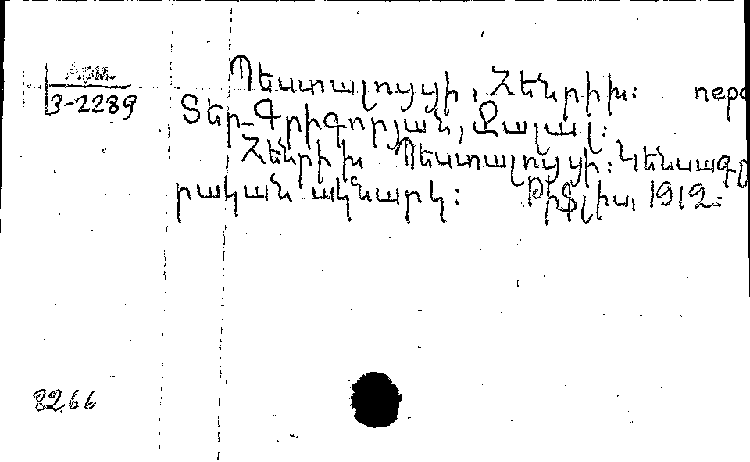 Арм.
3-2289
Պեստալոցցի, Հենրիխ։ пере
Տեր-Գրիգորյան, Ջալալ։
Հենրիխ Պեստալոցցի։ Կենսագր
րական ակնարկ։ Թիֆլիս, 1912։
8266